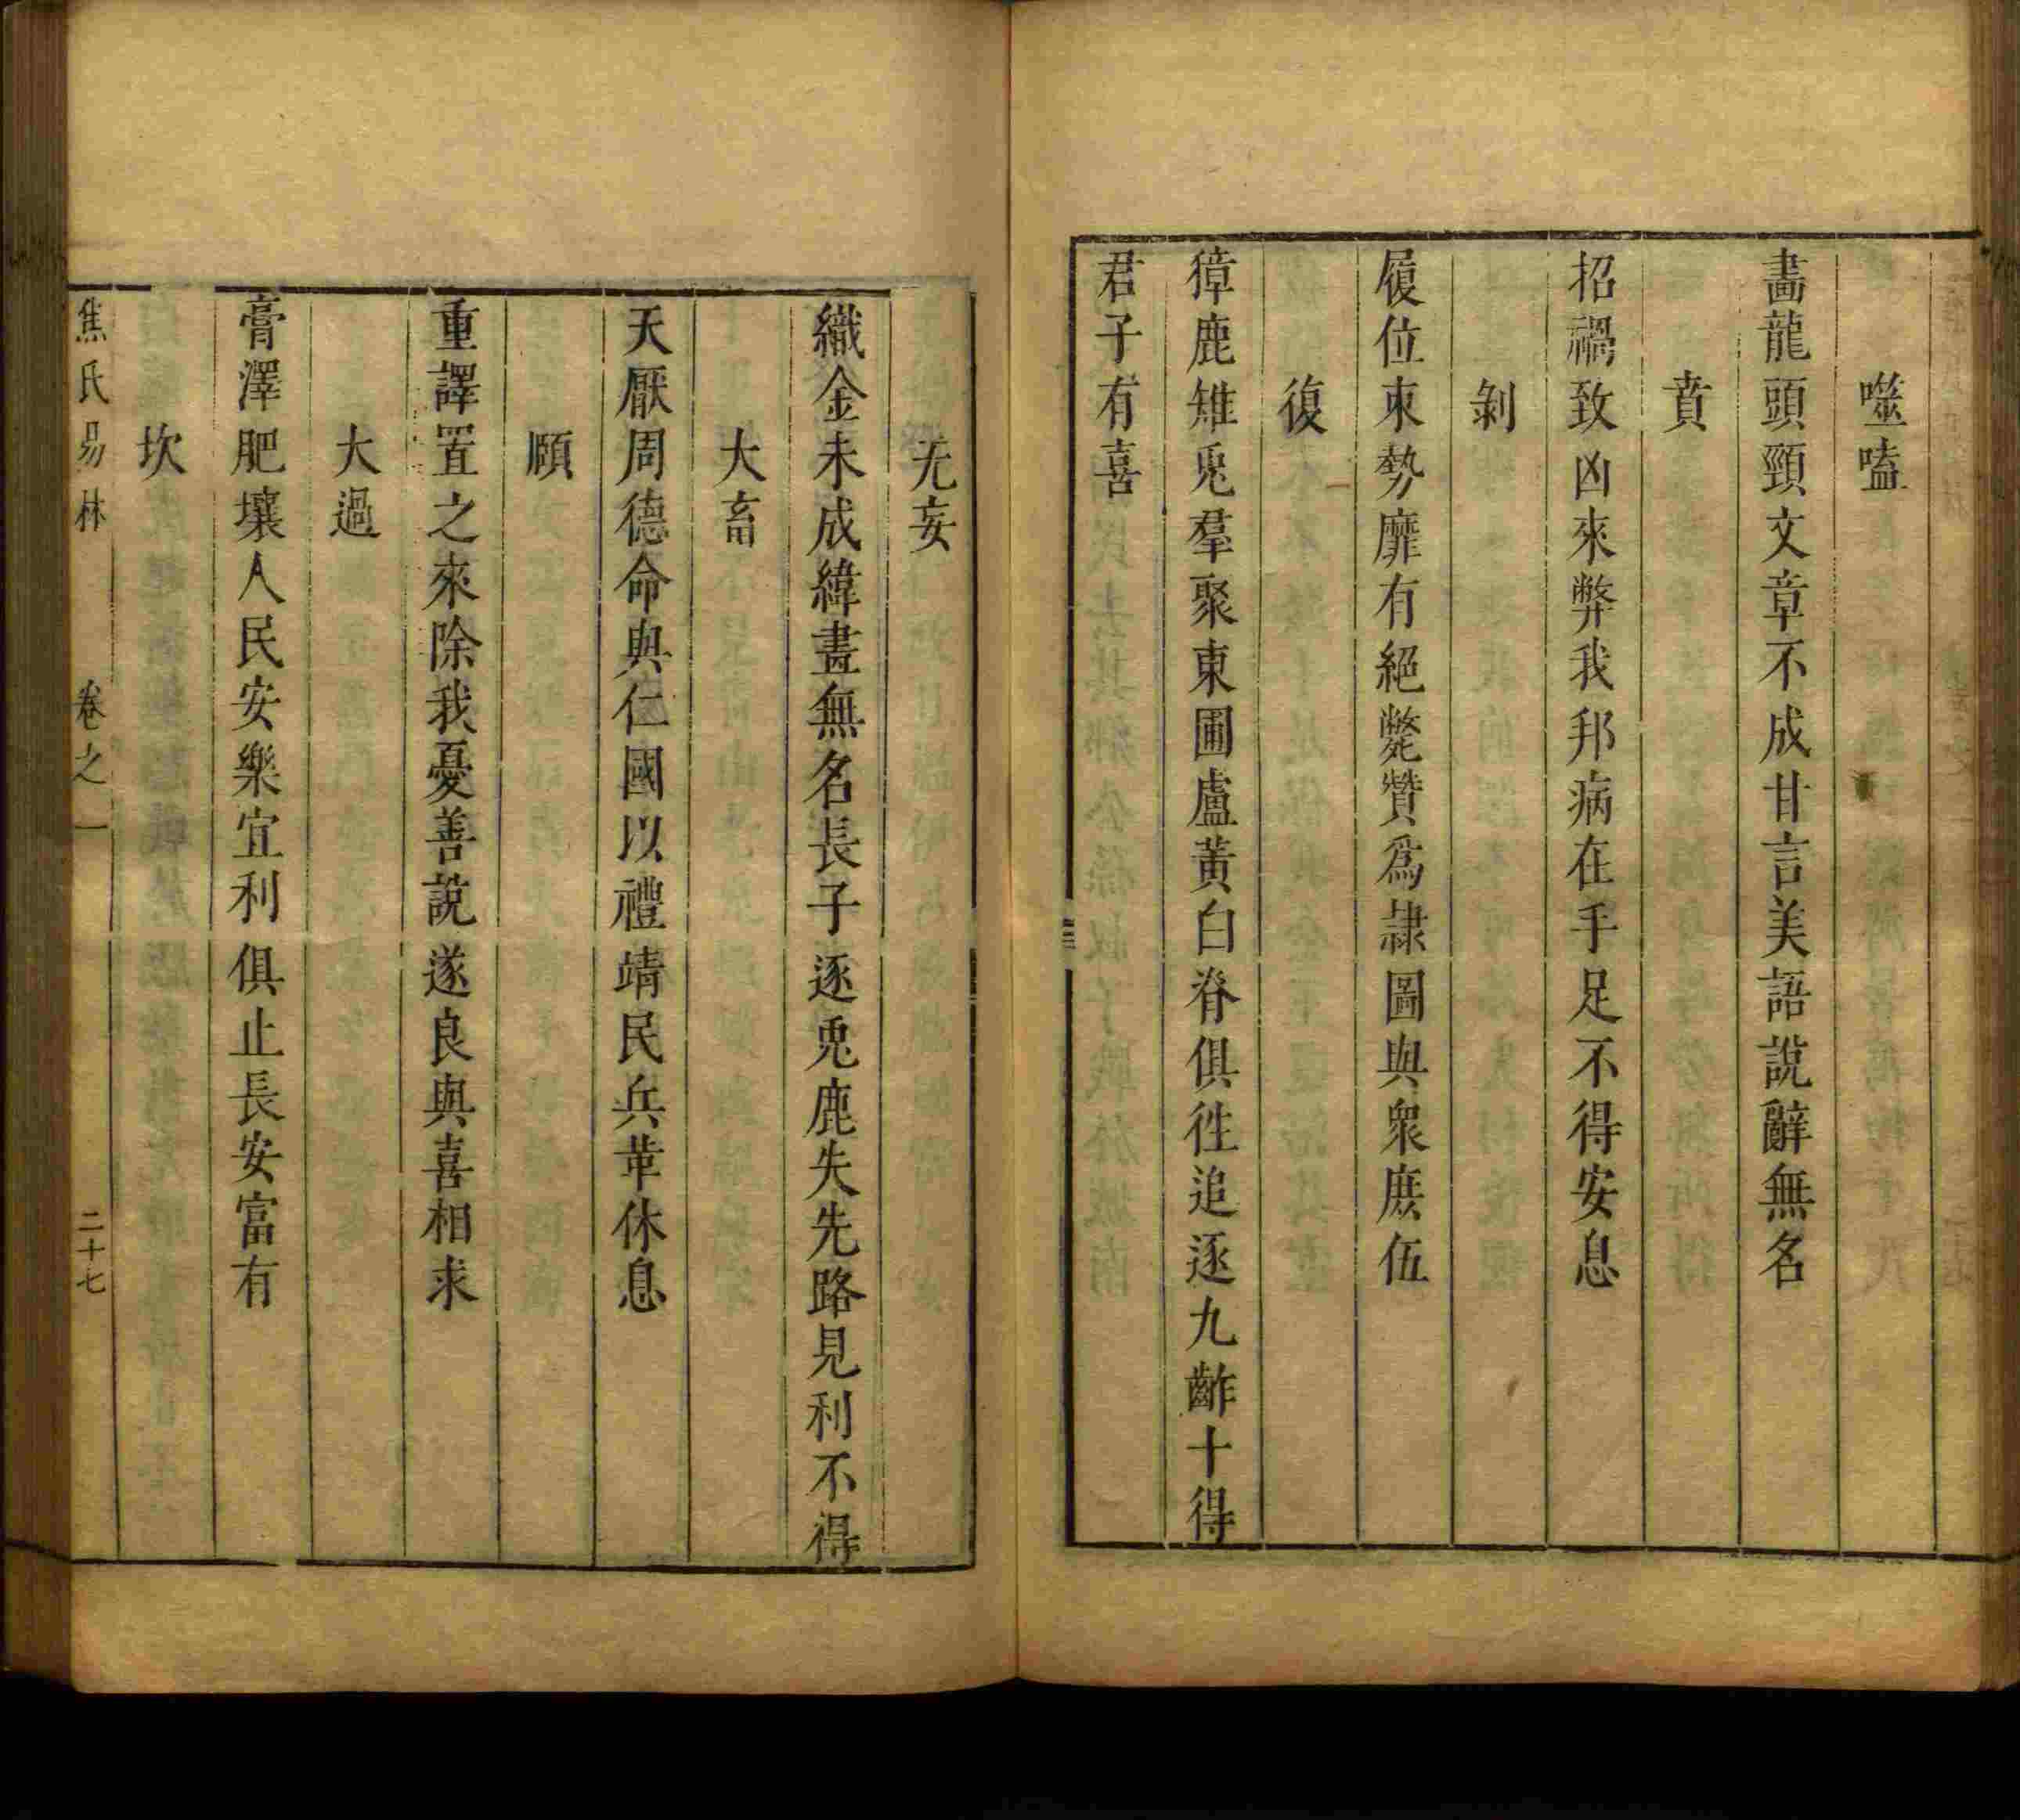 噬嗑
畵龍頭頸文章不成甘言美語說辭無名
賁
招禍致凶來弊我邦病在手足不得安息
剝
履位柬勢靡有絕斃贊爲隷圖與衆庶伍
復
獐鹿雉兎羣聚東圃盧黃白脊俱徃追逐九齚十得
君子有喜
无妄
織金未成緯畫無名長子逐兎鹿失先路見利不得
大畜
天厭周德命與仁國以禮靖民兵革休息
頤
重譯置之來除我憂善說遂良與喜相求
大過
膏澤肥壤人民安樂宜利俱止長安富有
坎
焦氏易林 卷之一 二十七